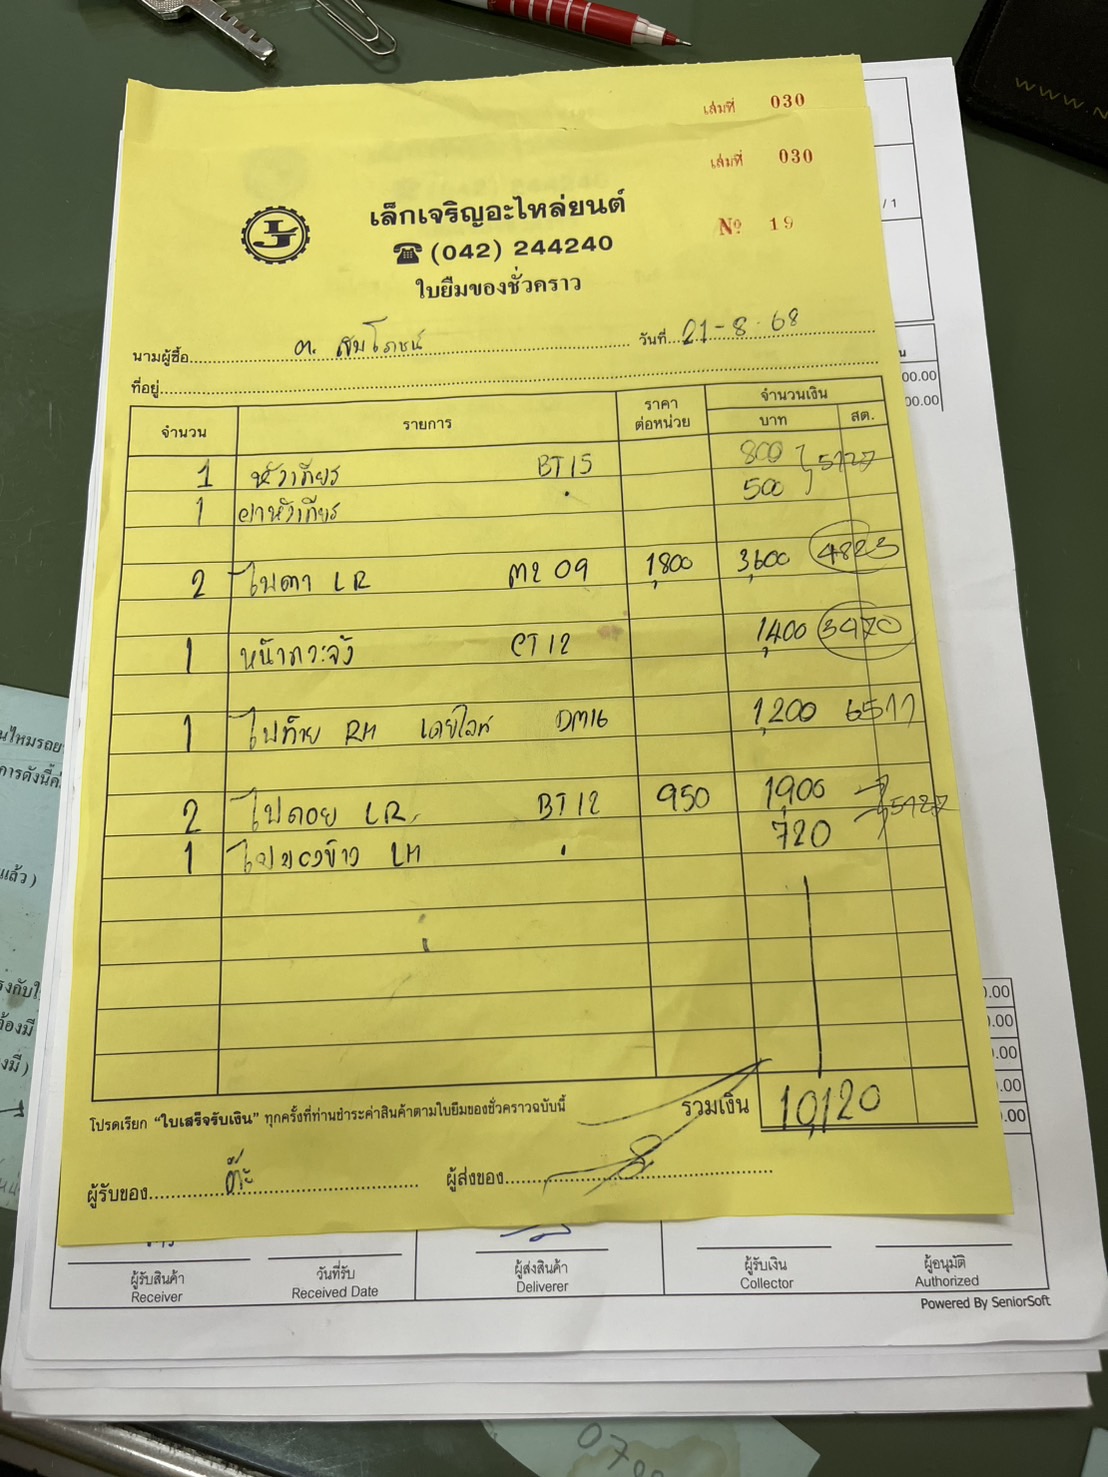 เล่มที่ 030
เล่มที่ 030
เล็กเจริญอะไหล่ยนต์
Nº 19
LJ
☎ (042) 244240
ใบยืมของชั่วคราว
นามผู้ซื้อ ต. สมโภชน์ วันที่ 21-8-68
ที่อยู่
จำนวน รายการ ราคาต่อหน่วย จำนวนเงิน บาท สต.
1 หัวเกียร BT15 800 5127
1 ฝาหัวเกียร 500
2 ไฟตา LR M2 09 1,800 3,600 4823
1 หน้ากระจัง CT12 1,400 3970
1 ไฟท้าย RH เดย์ไลท์ DM16 1,200 6511
2 ไฟดอย LR BT12 950 1,900 5127
1 LH 720
โปรดเรียก “ใบเสร็จรับเงิน” ทุกครั้งที่ท่านชำระค่าสินค้าตามใบยืมของชั่วคราวฉบับนี้ รวมเงิน 10,120
ผู้รับของ ต๊ะ ผู้ส่งของ
ผู้รับสินค้า วันที่รับ ผู้ส่งสินค้า ผู้รับเงิน ผู้อนุมัติ
Receiver Received Date Deliverer Collector Authorized
Powered By SeniorSoft
/ 1
00.00
00.00
0.00
.00
.00
.00
.00
แล้ว )
WWW.N
070